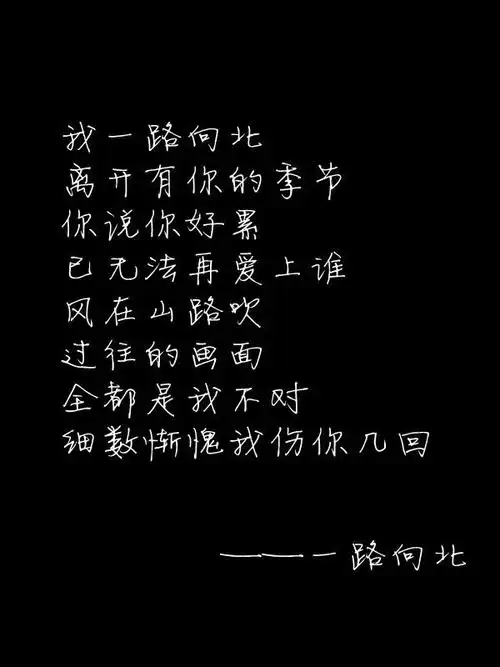 我一路向北
离开有你的季节
你说你好累
已无法再爱上谁
风在山路吹
过往的画面
全都是我不对
细数惭愧我伤你几回
——一路向北